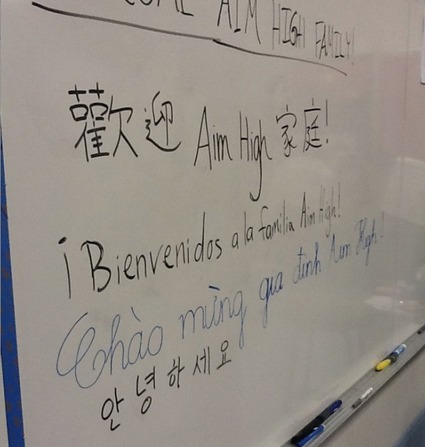 AIM HIGH FAMILY!
歡迎 Aim High 家庭!
¡Bienvenidos a la familia Aim High!
Chào mừng gia đình Aim High!
안녕하세요